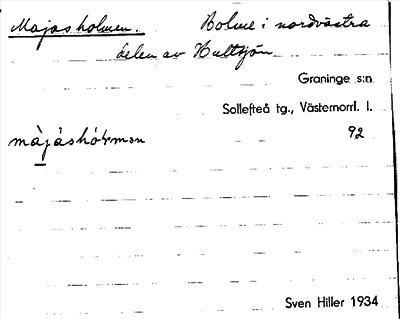 Majasholmen. Holme i nordvästra
delen av Hultsjön
Graninge s:n
Sollefteå tg., Västernorrl. l.
92
Sven Hiller 1934